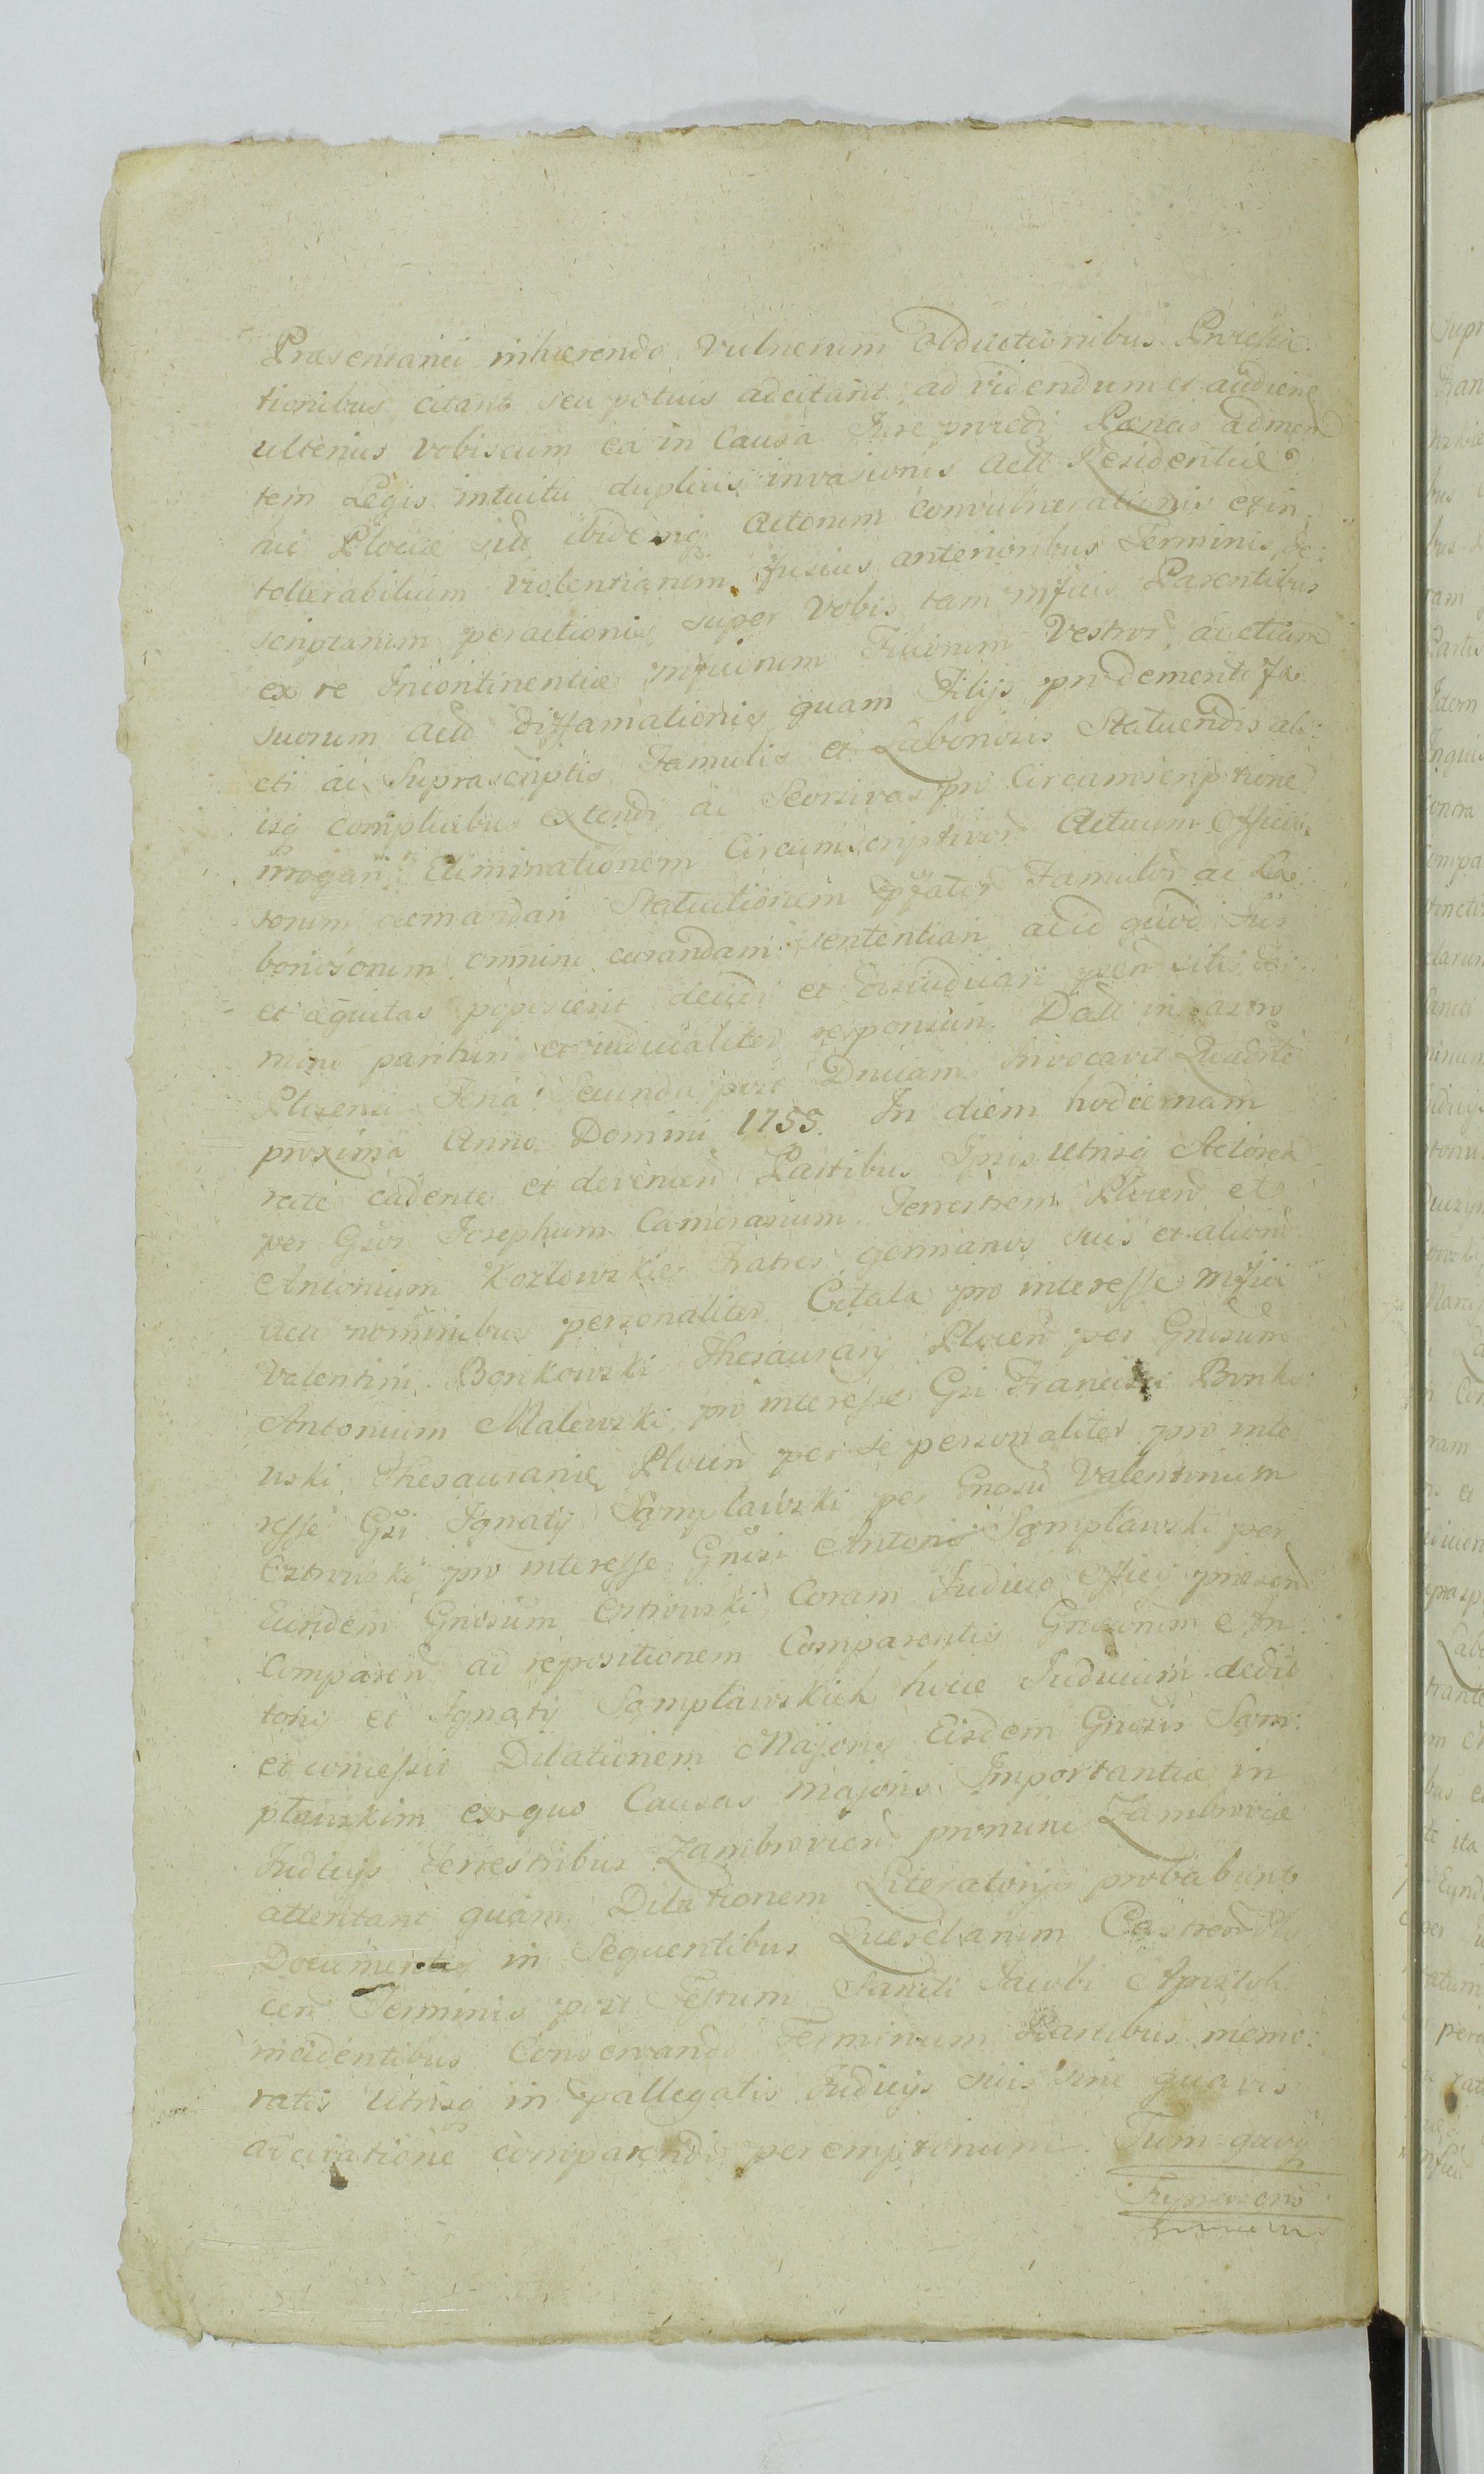 Præsentanei inhærendo Vulnerum Obductionibus Protesta:
tionibus citant seu potius adcitant ad videndum et audiend
ulterius Vobiscum ea in Causa Jure procedi Pænas ad men
tem Legis intuitu duplicis invasionis Actt Residentiæ
hic Plociæ sitt ibidemq Actorum convulnerationis et in
tollerabilium violentiarum fusius anterioribus Terminis de:
scriptarum peractionis super Vobis tam mfficis Parentibus
ex re Incontinentiæ mfficorum Filiorum Vestror ac etiam
suorum Actt diffamationis quam Filijs pro demerito fa:
cti ac Suprascriptis Famulis et Laboriosis Statuendis ali:
isq complicibus extendi ac Seorsivas pro Circumscriptione
irrogari Eliminationem Circumscriptivor Actuum Officio
sorum demandari Statuitionem pfator Famulor ac La:
boriosorum omnino curandam sententiari ac id quod Jus
et æquitas poposcerit decidi et dijudicari pten sitis Ter
mino parituri et judicialiter responsuri. Datt in Castro
Plocensi Feria Secunda post Dnicam Invocavit Quadrle
proxima Anno Domini 1755. In diem hodiernam
rite cadente et devenien Partibus Ipsis utrisq Actorea
per Gsos Josephum Camerarium Terrestrem Plocen et
Antonium Kozłowskie Fratres germanos suis et aliorum
Actt nominibus personaliter Citata pro interesse mffici
Valentini Bonkowski Thesaurarij Plocen per Gnosum
Antonium Malewski pro interesse Gsi Francisci Bonko:
wski Thesauranic Plocen per se personaliter pro inte
resse Gsi Ignatij Sąmpławski per Gnosum Valentinum
Cztwiński pro interesse Gnosi Antoni Sąmpławski per
Eundem Gnosum Cztwiński Coram Judicio Officio præsen
Comparen ad repositionem Comparentis Gnosorum An
toni et Ignatij Sąmpławskich hocce Judicium dedit
et concessit Dilationem Majoris Eisdem Gnosis Sąm:
pławskim ex quo Causas majoris Importantiæ in
Judicijs Terrestribus Zambrovien pronunc Zambroviæ
attentant quam Dilationem Literatorijs probabunt
Documentis in Sequentibus Querelarum Castren Plo
cen Terminis post Festum Sancti Jacobi Apostoli
incidentibus Conservand Terminum Partibus memo:
ratis utrisq in pallegatis Judicijs suis sine quavis
adcitatione comparendi peremptorium. Tum quoq